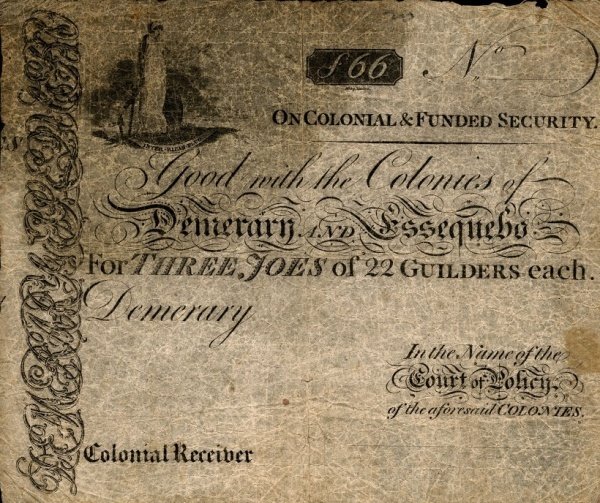 ƒ66
No
ON COLONIAL & FUNDED SECURITY.
Good with the Colonies of
Demerary AND Essequebo
For THREE JOES of 22 GUILDERS each.
Demerary
In the Name of the
Court of Policy,
of the aforesaid COLONIES.
Colonial Receiver